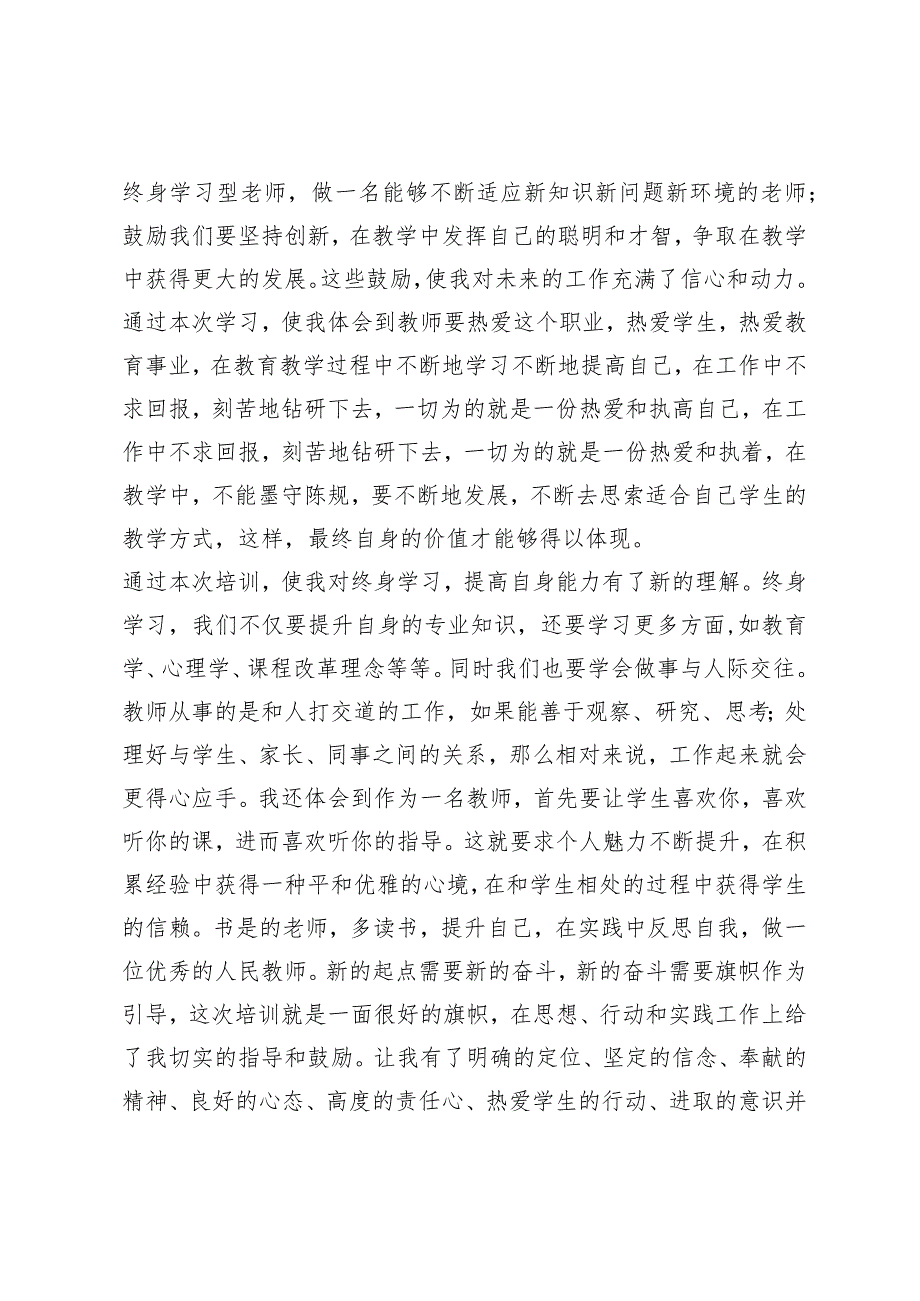 终身学习型老师，做一名能够不断适应新知识新问题新环境的老师；
鼓励我们要坚持创新，在教学中发挥自己的聪明和才智，争取在教学
中获得更大的发展。这些鼓励，使我对未来的工作充满了信心和动力。
通过本次学习，使我体会到教师要热爱这个职业，热爱学生，热爱教
育事业，在教育教学过程中不断地学习不断地提高自己，在工作中不
求回报，刻苦地钻研下去，一切为的就是一份热爱和执高自己，在工
作中不求回报，刻苦地钻研下去，一切为的就是一份热爱和执着，在
教学中，不能墨守陈规，要不断地发展，不断去思索适合自己学生的
教学方式，这样，最终自身的价值才能够得以体现。
通过本次培训，使我对终身学习，提高自身能力有了新的理解。终身
学习，我们不仅要提升自身的专业知识，还要学习更多方面,如教育
学、心理学、课程改革理念等等。同时我们也要学会做事与人际交往。
教师从事的是和人打交道的工作，如果能善于观察、研究、思考；处
理好与学生、家长、同事之间的关系，那么相对来说，工作起来就会
更得心应手。我还体会到作为一名教师，首先要让学生喜欢你，喜欢
听你的课，进而喜欢听你的指导。这就要求个人魅力不断提升，在积
累经验中获得一种平和优雅的心境，在和学生相处的过程中获得学生
的信赖。书是的老师，多读书，提升自己，在实践中反思自我，做一
位优秀的人民教师。新的起点需要新的奋斗，新的奋斗需要旗帜作为
引导，这次培训就是一面很好的旗帜，在思想、行动和实践工作上给
了我切实的指导和鼓励。让我有了明确的定位、坚定的信念、奉献的
精神、良好的心态、高度的责任心、热爱学生的行动、进取的意识并